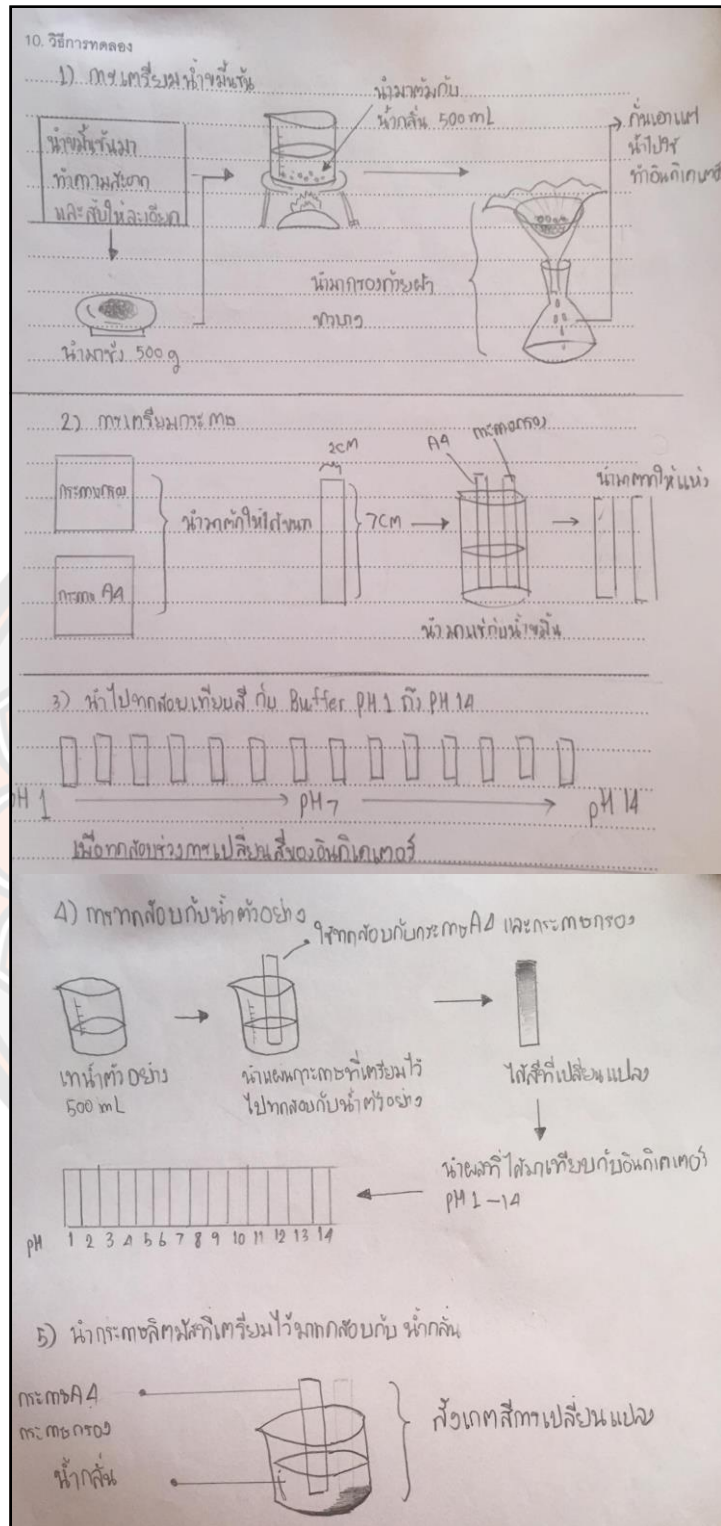 10. วิธีการทดลอง
1) การเตรียมน้ำขมิ้นชัน
นำมาต้มกับ
น้ำกลั่น 500 mL
นำขมิ้นชันมา
ทำความสะอาด
และสับให้ละเอียด
กั่นเอาแต่
น้ำไปใช้
ทำอินดิเคเตอร์
นำมากรองด้วยผ้า
ขาวบาง
นำมาชั่ง 500 g
2) การเตรียมกระดาษ
2cm
A4
กระดาษกรอง
นำมาตากให้แห้ง
กระดาษกรอง
นำมาตัดให้ได้ขนาด
7cm
กระดาษ A4
นำมาแช่กับน้ำขมิ้น
3) นำไปทดสอบเทียบสี กับ Buffer PH 1 ถึง PH 14
pH 1
pH 7
pH 14
เพื่อทดสอบช่วงการเปลี่ยนสีของอินดิเคเตอร์
4) การทดสอบกับน้ำตัวอย่าง
ใช้ทดสอบกับกระดาษ A4 และกระดาษกรอง
เทน้ำตัวอย่าง
500 mL
นำแผ่นกระดาษที่เตรียมไว้
ไปทดสอบกับน้ำตัวอย่าง
ได้สีที่เปลี่ยนแปลง
นำผลที่ได้มาเทียบกับอินดิเคเตอร์
PH 1-14
pH 1 2 3 4 5 6 7 8 9 10 11 12 13 14
5) นำกระดาษลิตมัสที่เตรียมไว้มาทดสอบกับ น้ำกลั่น
กระดาษA4
กระดาษกรอง
น้ำกลั่น
สังเกตสีการเปลี่ยนแปลง